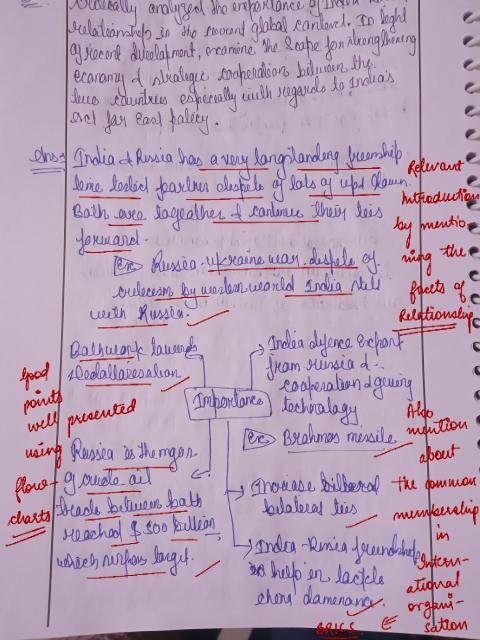 Critically analyzed the importance of India
relationship in the current global context. In light
of recent development, examine the scope for strengthening
economy & strategic cooperation between the
two countries especially with regards to India's
act far East policy.
Ans:- India & Russia has a very long standing freenship
time tested partner despite of lots of ups & Down.
Both are togeather & continue their ties
forward.
Ex Russia-Ukraine war despite of
by western world India still
with Russia.
Relevant
Introduction
by mentio
ning the
facts of
Relationship
Both work towards
Dedollarisation
Importance
India defence Export
from russia &
cooperation & geving
technology
Ex: Brahmos messile
Good
points
well presented
using
flow-
charts
Russia is the major
of crude oil
trade between both
reached $ 500 billion
which surpass target.
Increase
bilateral ties
India-Russia freendship
help in tackle
china
Also
mention
about
the common
membership
in
Intern-
ational
organi-
sation
BRICS